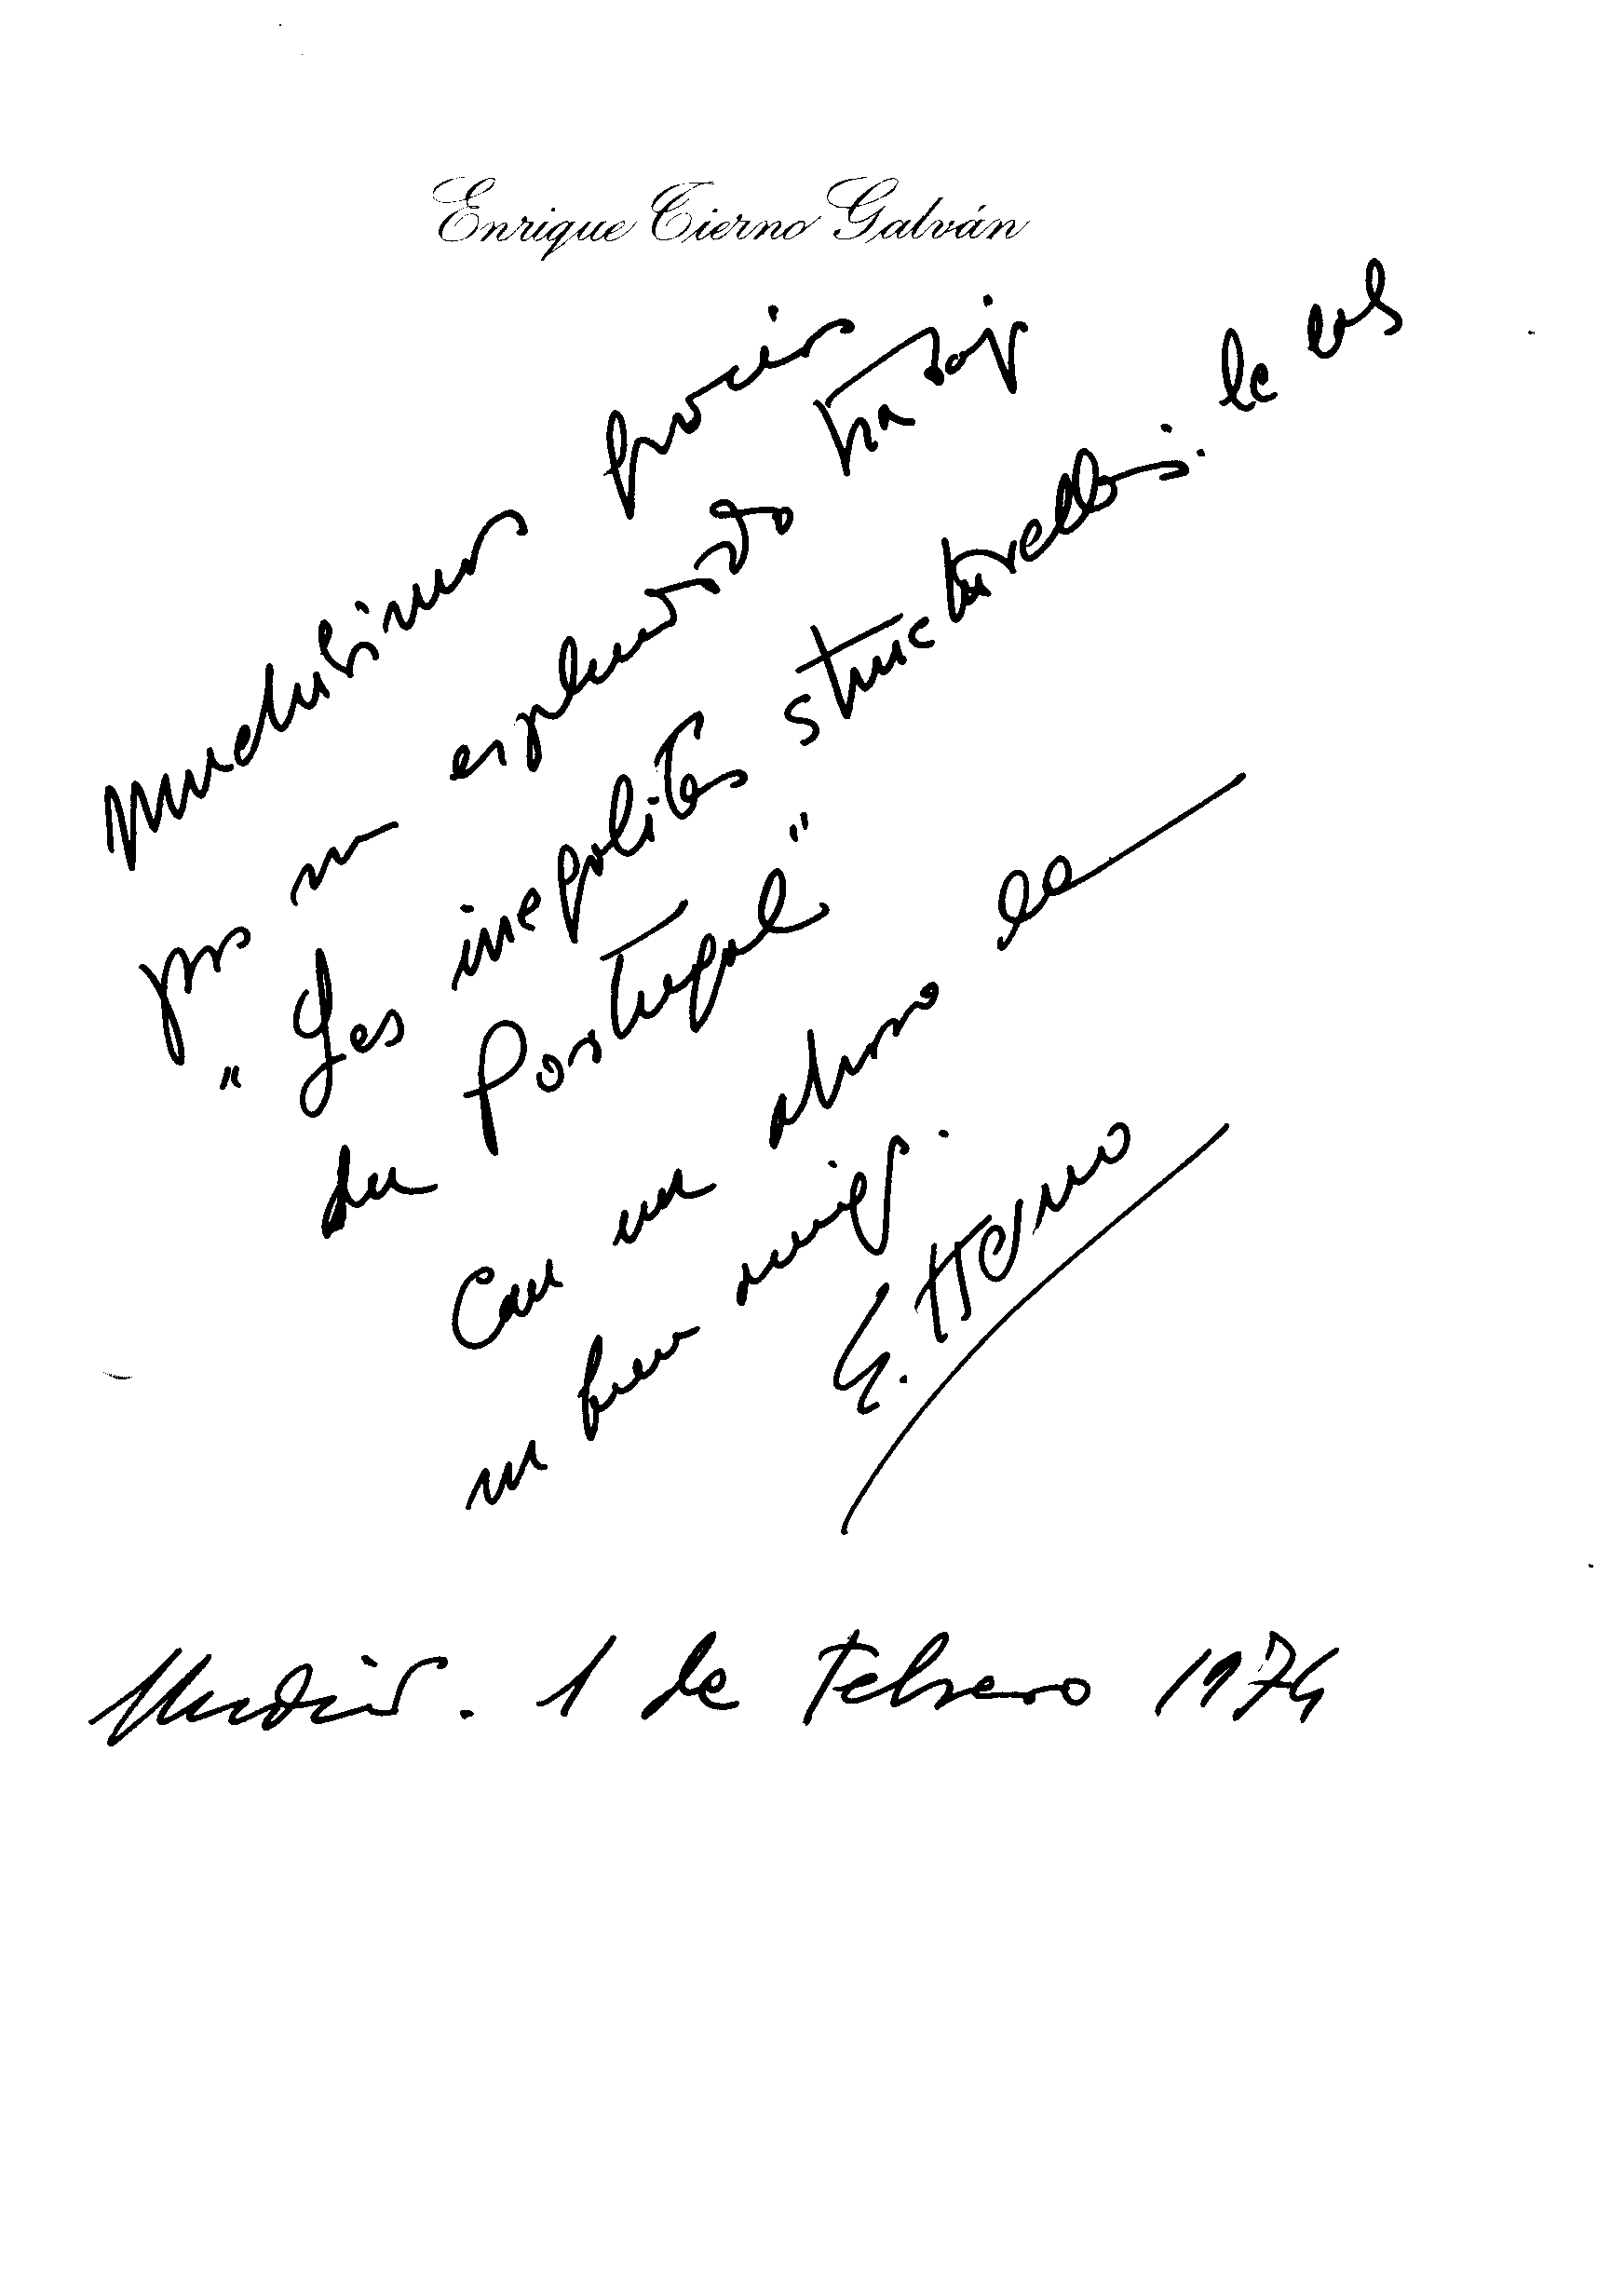 Enrique Tierno Galván
Muchísimas gracias
por su espléndido trabajo
"Les inegalités structurelles: le cas
du Portugal"
Con un abrazo de
su buen amigo.
E. Tierno
Madrid. 1 de Febrero 1974